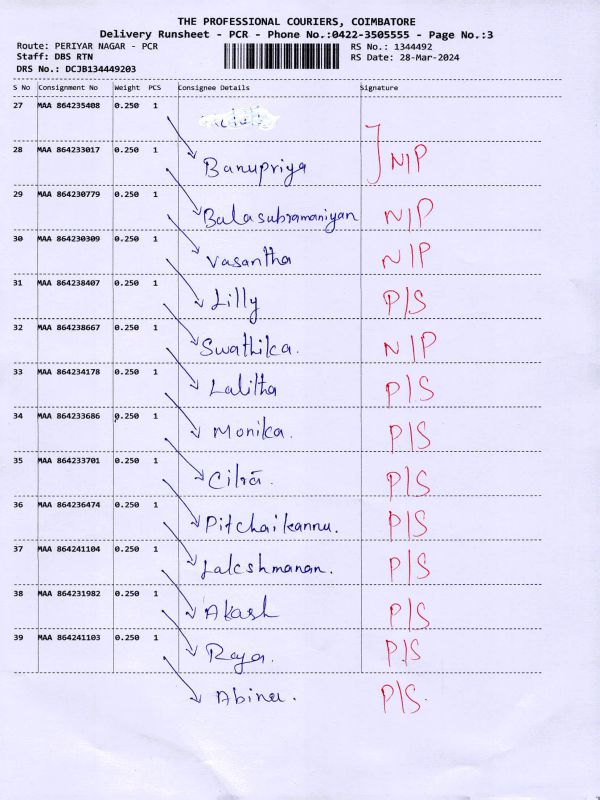 THE PROFESSIONAL COURIERS, COIMBATORE
Delivery Runsheet - PCR - Phone No.:0422-3505555 - Page No.:3
Route: PERIYAR NAGAR - PCR
RS No.: 1344492
Staff: DBS RTN
RS Date: 28-Mar-2024
DRS No.: DCJB134449203
S No Consignment No Weight PCS Consignee Details Signature
27 MAA 864235408 0.250 1
28 MAA 864233017 0.250 1
Banupriya N/P
29 MAA 864230779 0.250 1
Balasubramaniyan N/P
30 MAA 864230309 0.250 1
Vasantha N/P
31 MAA 864238407 0.250 1
Lilly P/S
32 MAA 864238667 0.250 1
Swathika. N/P
33 MAA 864234178 0.250 1
Lalitha P/S
34 MAA 864233686 0.250 1
Monika. P/S
35 MAA 864233701 0.250 1
P/S
36 MAA 864236474 0.250 1
Pitchaikannu. P/S
37 MAA 864241104 0.250 1
Lakshmanan. P/S
38 MAA 864231982 0.250 1
Akash P/S
39 MAA 864241103 0.250 1
Raja. P/S
Abina. P/S.